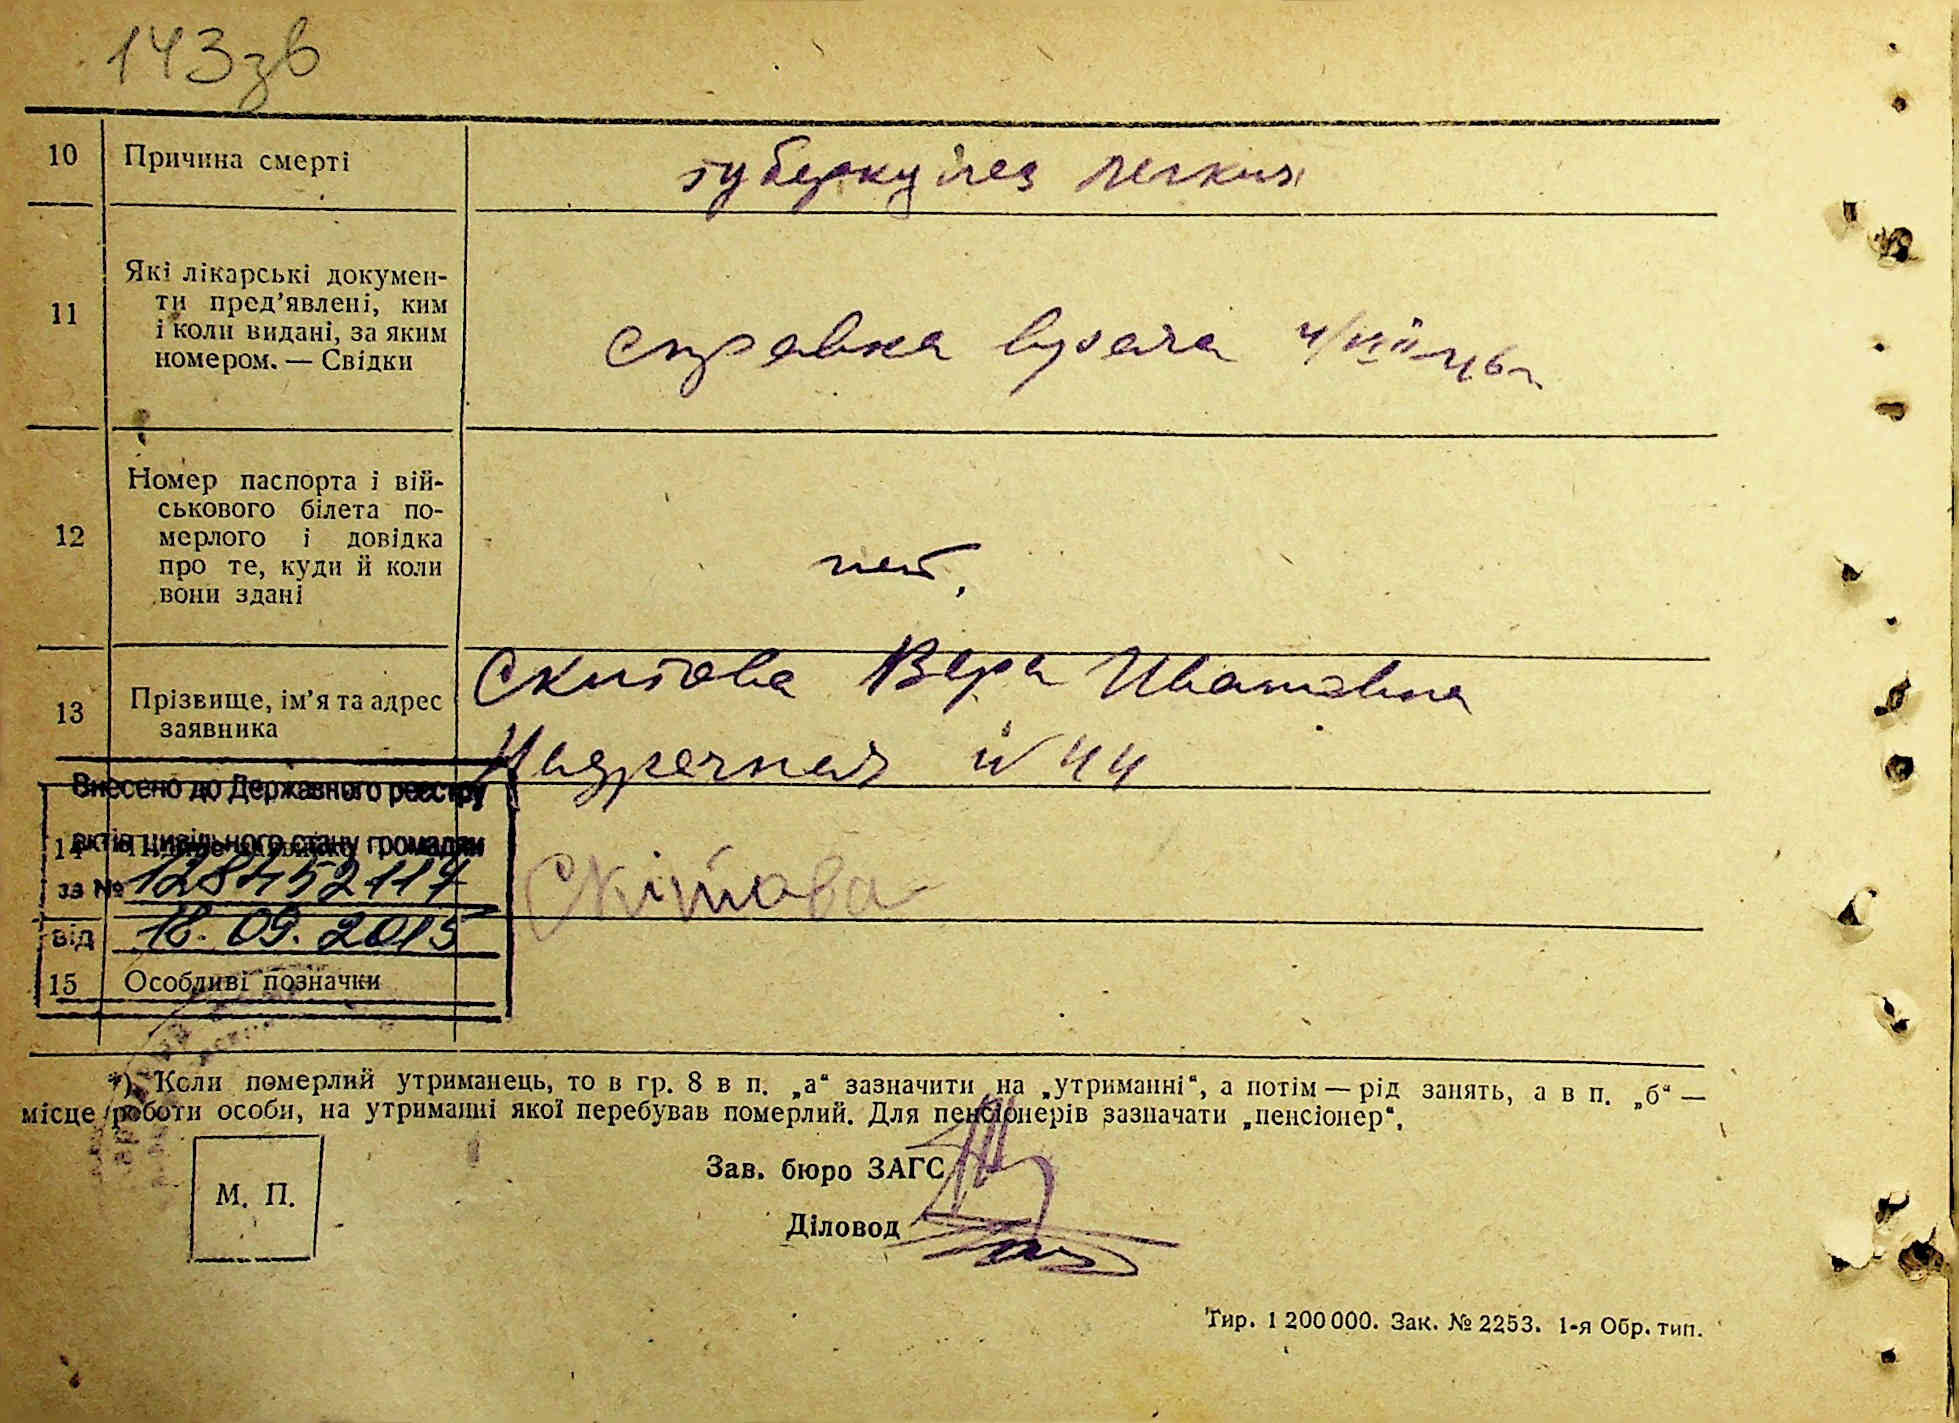 143зв
10 Причина смерті туберкулез легких
11 Які лікарські докумен-
ти пред'явлені, ким
і коли видані, за яким
номером. — Свідки
справка врача
12 Номер паспорта і вій-
ськового білета по-
мерлого і довідка
про те, куди й коли
вони здані
нет.
13 Прізвище, ім'я та адрес
заявника
Скитова Вера Ивановна
Надречная № 44
Внесено до Державного реєстру
актів цивільного стану громадян
14
Скітова
за № 128452117
від 18.09.2015
15 Особливі позначки
*) Коли померлий утриманець, то в гр. 8 в п. „а“ зазначити на „утриманні“, а потім — рід занять, а в п. „б“ —
місце роботи особи, на утриманні якої перебував померлий. Для пенсіонерів зазначати „пенсіонер“.
Зав. бюро ЗАГС
М. П.
Діловод
Тир. 1 200 000. Зак. № 2253. 1-я Обр. тип.